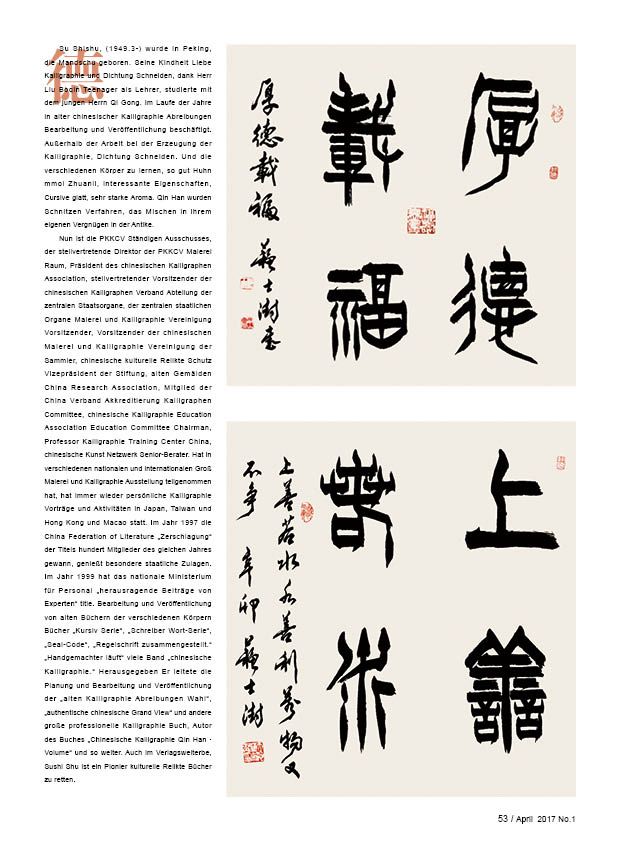 德
Su Shishu, (1949.3-) wurde in Peking,
die Mandschu geboren. Seine Kindheit Liebe
Kalligraphie und Dichtung Schneiden, dank Herr
Liu Bocin Teenager als Lehrer, studierte mit
dem jungen Herrn Qi Gong. Im Laufe der Jahre
in alter chinesischer Kalligraphie Abreibungen
Bearbeitung und Veröffentlichung beschäftigt.
Außerhalb der Arbeit bei der Erzeugung der
Kalligraphie, Dichtung Schneiden. Und die
verschiedenen Körper zu lernen, so gut Huhn
mmol Zhuanli, interessante Eigenschaften,
Cursive glatt, sehr starke Aroma. Qin Han wurden
Schnitzen Verfahren, das Mischen in Ihrem
eigenen Vergnügen in der Antike.
Nun ist die PKKCV Ständigen Ausschusses,
der stellvertretende Direktor der PKKCV Malerei
Raum, Präsident des chinesischen Kalligraphen
Association, stellvertretender Vorsitzender der
chinesischen Kalligraphen Verband Abteilung der
zentralen Staatsorgane, der zentralen staatlichen
Organe Malerei und Kalligraphie Vereinigung
Vorsitzender, Vorsitzender der chinesischen
Malerei und Kalligraphie Vereinigung der
Sammler, chinesische kulturelle Relikte Schutz
Vizepräsident der Stiftung, alten Gemälden
China Research Association, Mitglied der
China Verband Akkreditierung Kalligraphen
Committee, chinesische Kalligraphie Education
Association Education Committee Chairman,
Professor Kalligraphie Training Center China,
chinesische Kunst Netzwerk Senior-Berater. Hat in
verschiedenen nationalen und internationalen Groß
Malerei und Kalligraphie Ausstellung teilgenommen
hat, hat immer wieder persönliche Kalligraphie
Vorträge und Aktivitäten in Japan, Taiwan und
Hong Kong und Macao statt. Im Jahr 1997 die
China Federation of Literature „Zerschlagung“
der Titels hundert Mitglieder des gleichen Jahres
gewann, genießt besondere staatliche Zulagen.
Im Jahr 1999 hat das nationale Ministerium
für Personal „herausragende Beiträge von
Experten“ title. Bearbeitung und Veröffentlichung
von alten Büchern der verschiedenen Körpern
Bücher „Kursiv Serie“, „Schreiber Wort-Serie“,
„Seal-Code“, „Regelschrift zusammengestellt.“
„Handgemachter läuft“ viele Band „chinesische
Kalligraphie.“ Herausgegeben Er leitete die
Planung und Bearbeitung und Veröffentlichung
der „alten Kalligraphie Abreibungen Wahl“,
„authentische chinesische Grand View“ und andere
große professionelle Kalligraphie Buch, Autor
des Buches „Chinesische Kalligraphie Qin Han ·
Volume“ und so weiter. Auch im Verlagsweiterbe,
Sushi Shu ist ein Pionier kulturelle Relikte Bücher
zu retten.
厚德
載福
厚德載福 蘇士澍書
上善
若水
上善若水水善利萬物又
不争 辛卯 蘇士澍
53 / April 2017 No.1